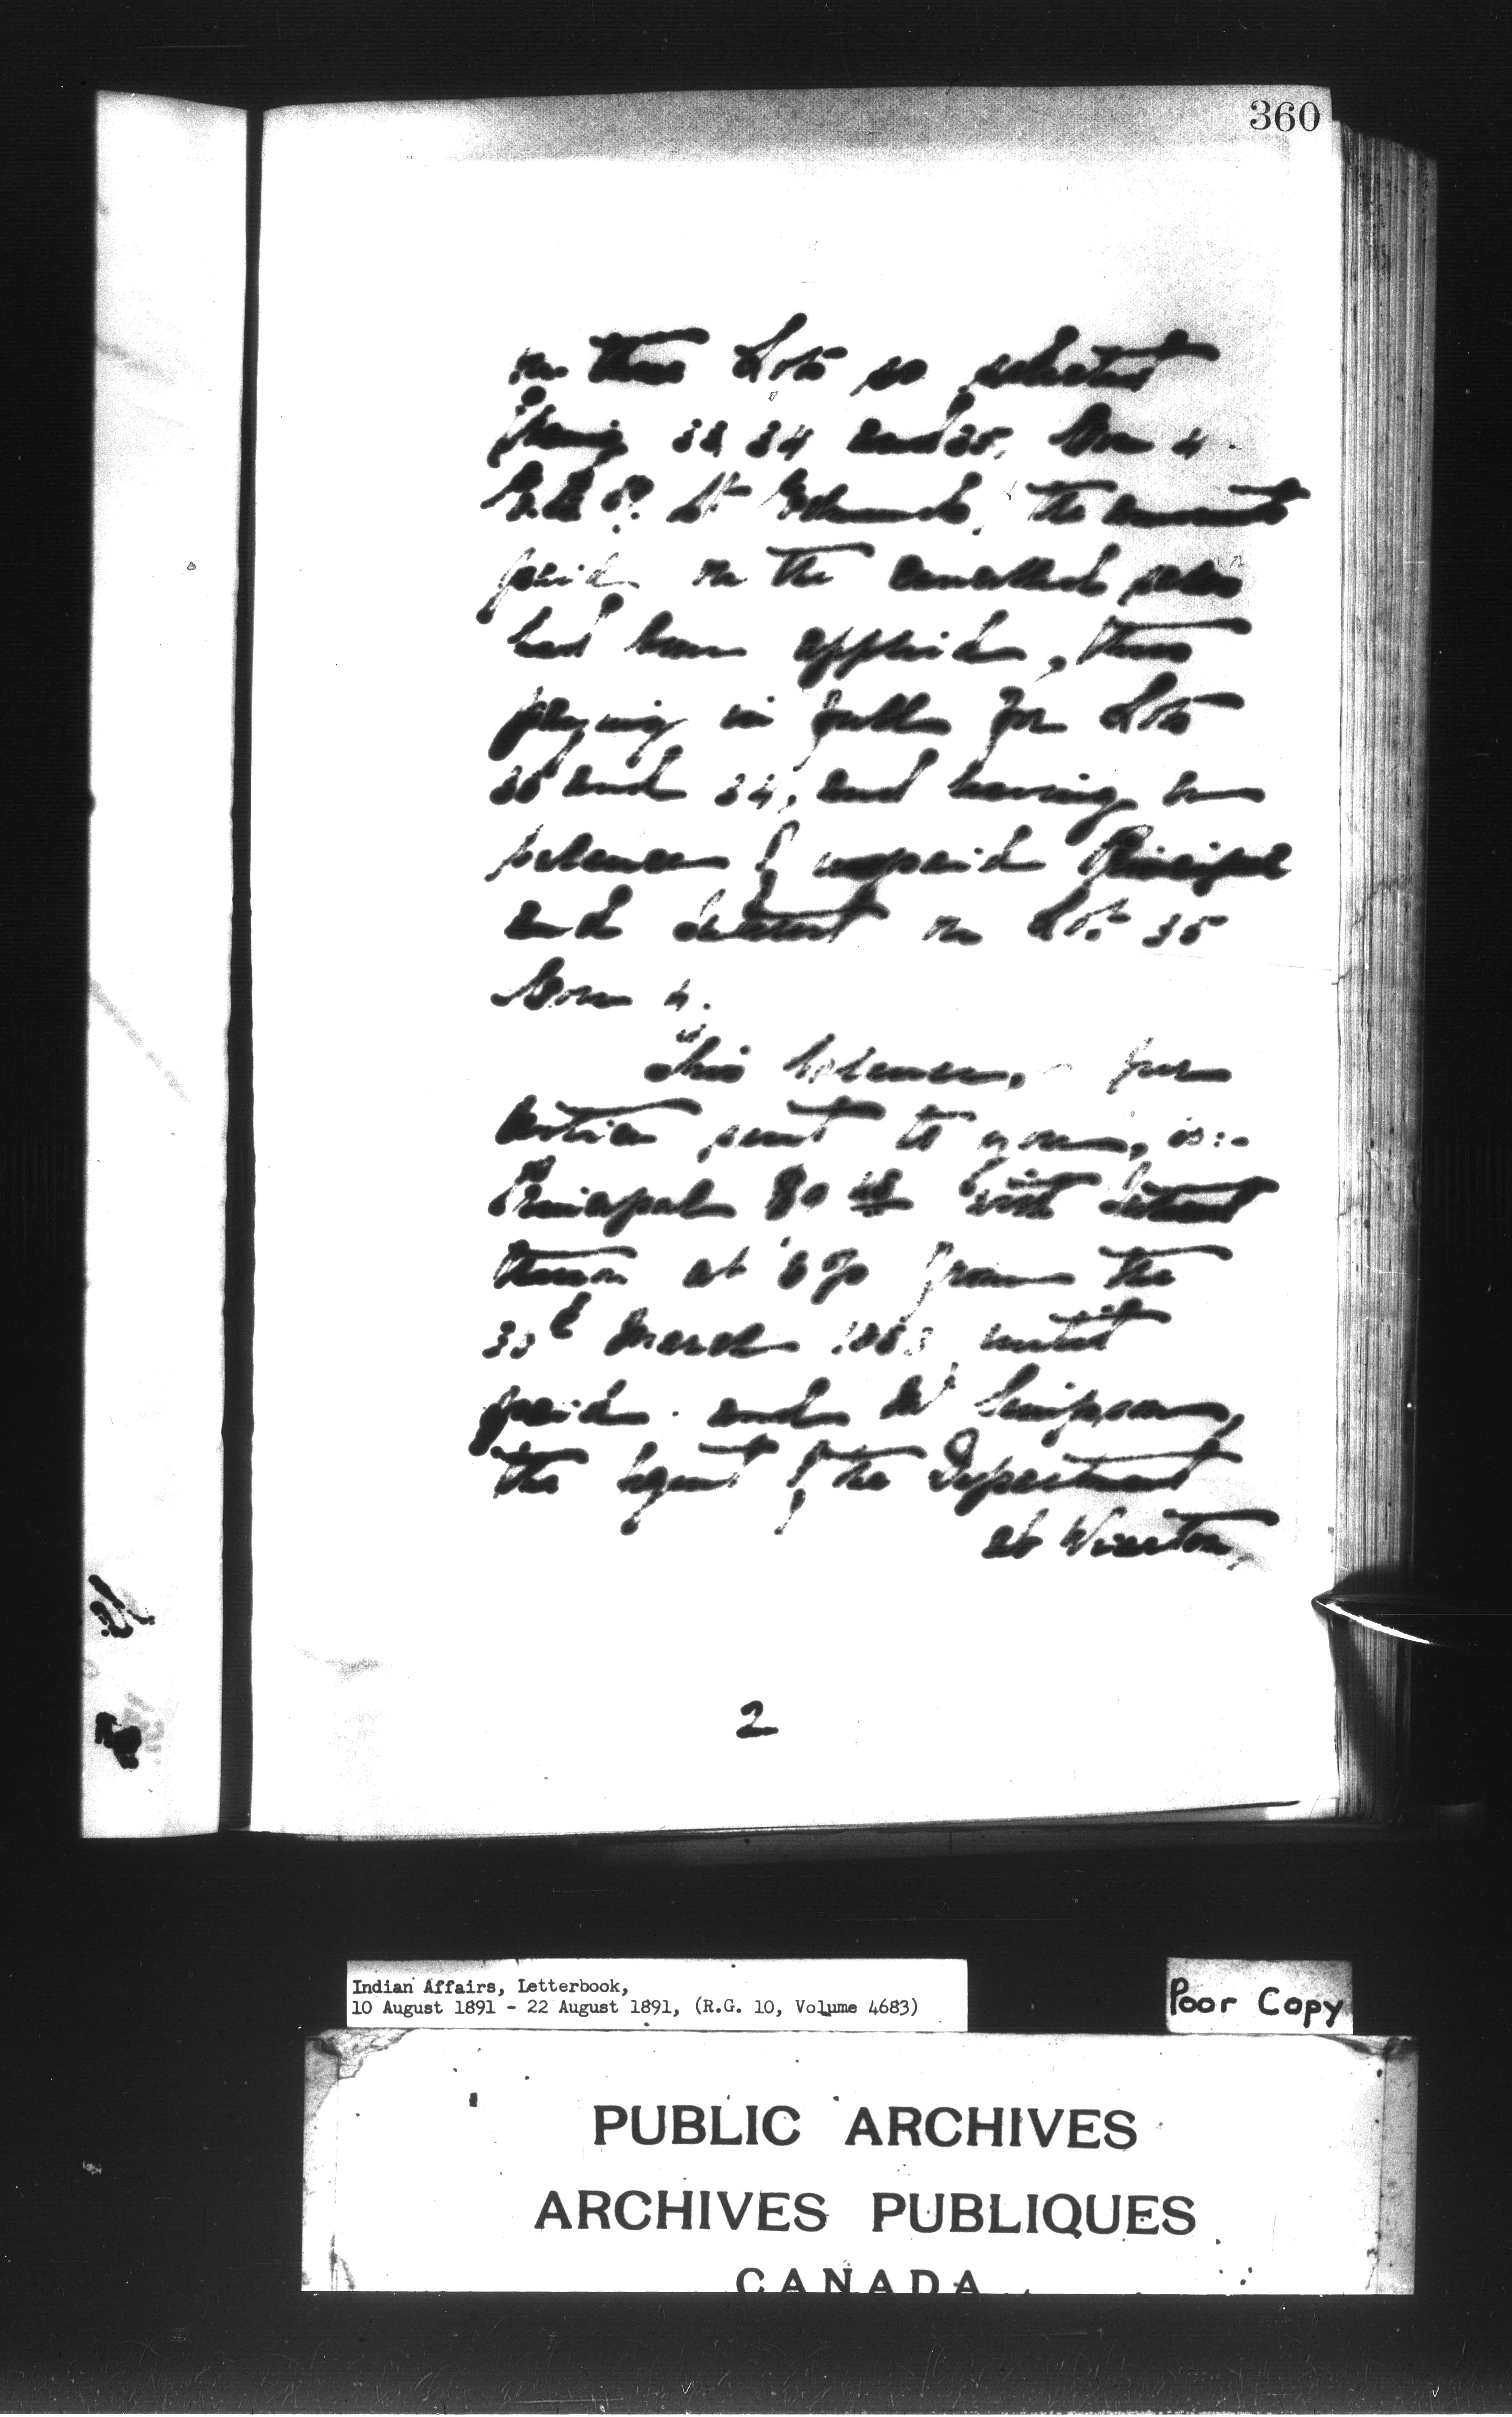 360
on three Lots so selected
being 33, 34 and 35, Con 4
St Edmunds, the amounts
paid on the cancelled sales
had been applied, thus
paying in full for Lots
and 34, and leaving a
balance of unpaid Principal
and Interest on Lot 35
Con 4.
This balance, per
notice sent to you, is:-
Principal with interest
thereon at 6% from the
March until
paid and Mr Simpson,
the Agent of the Department
at Wiarton,
2
Indian Affairs, Letterbook,
10 August 1891 - 22 August 1891, (R.G. 10, Volume 4683)
Poor Copy
PUBLIC ARCHIVES
ARCHIVES PUBLIQUES
CANADA